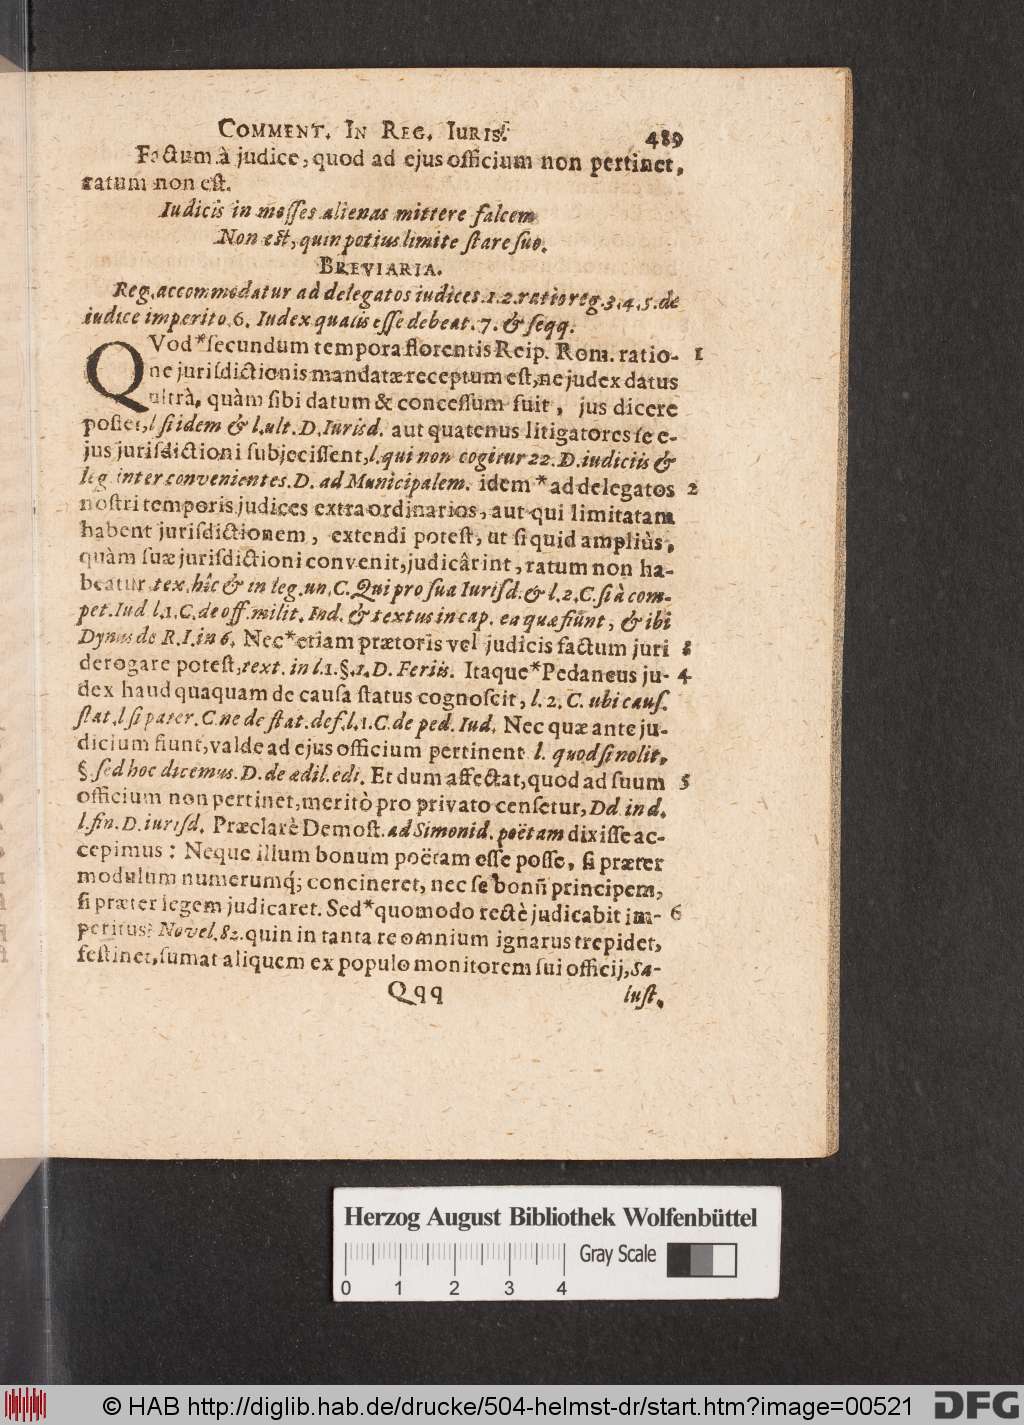 COMMENT. IN REG. IURIS. 489
Factum à judice, quod ad ejus officium non pertinet,
ratum non est.
Iudicis in messes alienas mittere falcem
Non est, quin potius limite stare suo.
BREVIARIA.
Reg. accommodatur ad delegatos iudices. 1. 2. ratio reg. 3. 4. 5. de
iudice imperito. 6. Iudex qualis esse debeat. 7. & seqq.
QVod*secundum tempora florentis Reip. Rom. ratio- 1
ne jurisdictionis mandatæ receptum est, ne judex datus
ultrà, quàm sibi datum & concessum fuit, jus dicere
posset, l si idem & l. ult. D. Iurisd. aut quatenus litigatores se e-
jus jurisdictioni subjecissent, l. qui non cogitur 22. D. iudiciis &
leg inter convenientes. D. ad Municipalem. idem*ad delegatos 2
nostri temporis judices extraordinarios, aut qui limitatam
habent jurisdictionem, extendi potest, ut si quid ampliùs,
quàm suæ jurisdictioni convenit, judicârint, ratum non ha-
beatur. tex. hîc & in leg. un. C. Qui pro sua Iurisd. & l. 2. C. si à com-
pet. Iud l. 1. C. de off. milit. Iud. & textus in cap. ea quæ fiunt, & ibi
Dynus de R. I. in 6. Nec*etiam prætoris vel judicis factum juri 3
derogare potest, text. in l. 1. §. 1. D. Feriis. Itaque*Pedaneus ju- 4
dex haud quaquam de causa status cognoscit, l. 2. C. ubi caus.
stat. l si pater. C. ne de stat. def. l. 1. C. de ped. Iud. Nec quæ ante ju-
dicium fiunt, valde ad ejus officium pertinent l. quod si nolit,
§. sed hoc dicemus. D. de ædil. edi. Et dum affectat, quod ad suum 5
officium non pertinet, meritò pro privato censetur, Dd. in d.
l. fin. D. iurisd. Præclarè Demost. ad Simonid. poëtam dixisse ac-
cepimus: Neque illum bonum poëtam esse posse, si præter
modulum numerumq́; concineret, nec se bonũ principem,
si præter legem judicaret. Sed*quomodo rectè judicabit im- 6
peritus? Novel. 82. quin in tanta re omnium ignarus trepidet,
festinet, sumat aliquem ex populo monitorem sui officij, Sa-
Qqq lust.
Herzog August Bibliothek Wolfenbüttel
Gray Scale
0 1 2 3 4
© HAB http://diglib.hab.de/drucke/504-helmst-dr/start.htm?image=00521
DFG